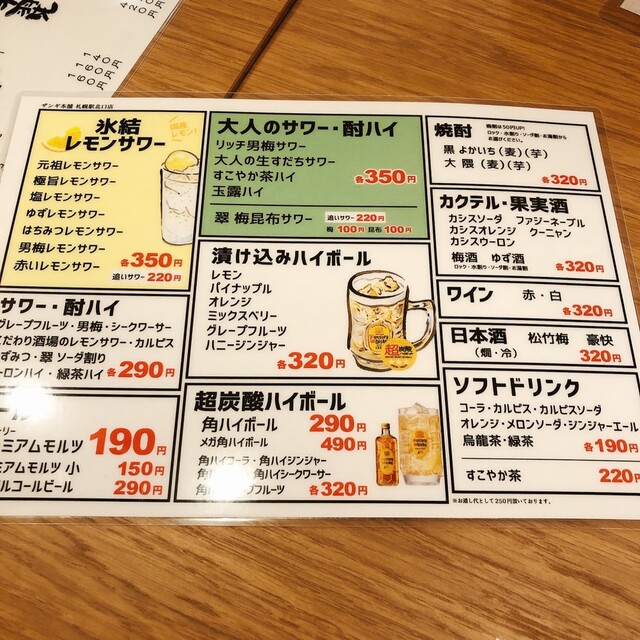 140円
160円
160円
420円
ザンギ本舗 札幌駅北口店
氷結
レモンサワー
国産
レモン!
元祖レモンサワー
極旨レモンサワー
塩レモンサワー
ゆずレモンサワー
はちみつレモンサワー
男梅レモンサワー
赤いレモンサワー
各350円
追いサワー 220円
大人のサワー・酎ハイ
リッチ男梅サワー
大人の生すだちサワー
すこやか茶ハイ
玉露ハイ
各350円
翠 梅昆布サワー
追いサワー 220円
梅 100円 昆布 100円
焼酎
ロック・水割り・ソーダ割・お湯割から
お選びください。
黒よかいち(麦)(芋)
大隈(麦)(芋)
各320円
カクテル・果実酒
カシスソーダ ファジーネーブル
カシスオレンジ クーニャン
カシスウーロン
梅酒 ゆず酒
ロック・水割り・ソーダ割・お湯割
各320円
ワイン 赤・白
各320円
日本酒 松竹梅 豪快
(燗・冷) 320円
漬け込みハイボール
レモン
パイナップル
オレンジ
ミックスベリー
グレープフルーツ
ハニージンジャー
各320円
サワー・酎ハイ
グレープフルーツ・男梅・シークワーサー
こだわり酒場のレモンサワー・カルピス
ずみつ・翠 ソーダ割り
ーロンハイ・緑茶ハイ
各290円
ール
ミアムモルツ 190円
ミアムモルツ 小 150円
ルコールビール 290円
超炭酸ハイボール
角ハイボール 290円
メガ角ハイボール 490円
角ハイコーラ・角ハイジンジャー
角ハイ 角ハイシークワーサー
角 プフルーツ
各320円
ソフトドリンク
コーラ・カルピス・カルピスソーダ
オレンジ・メロンソーダ・ジンジャーエール
烏龍茶・緑茶
各190円
すこやか茶 220円
※お通し代として250円頂いております。